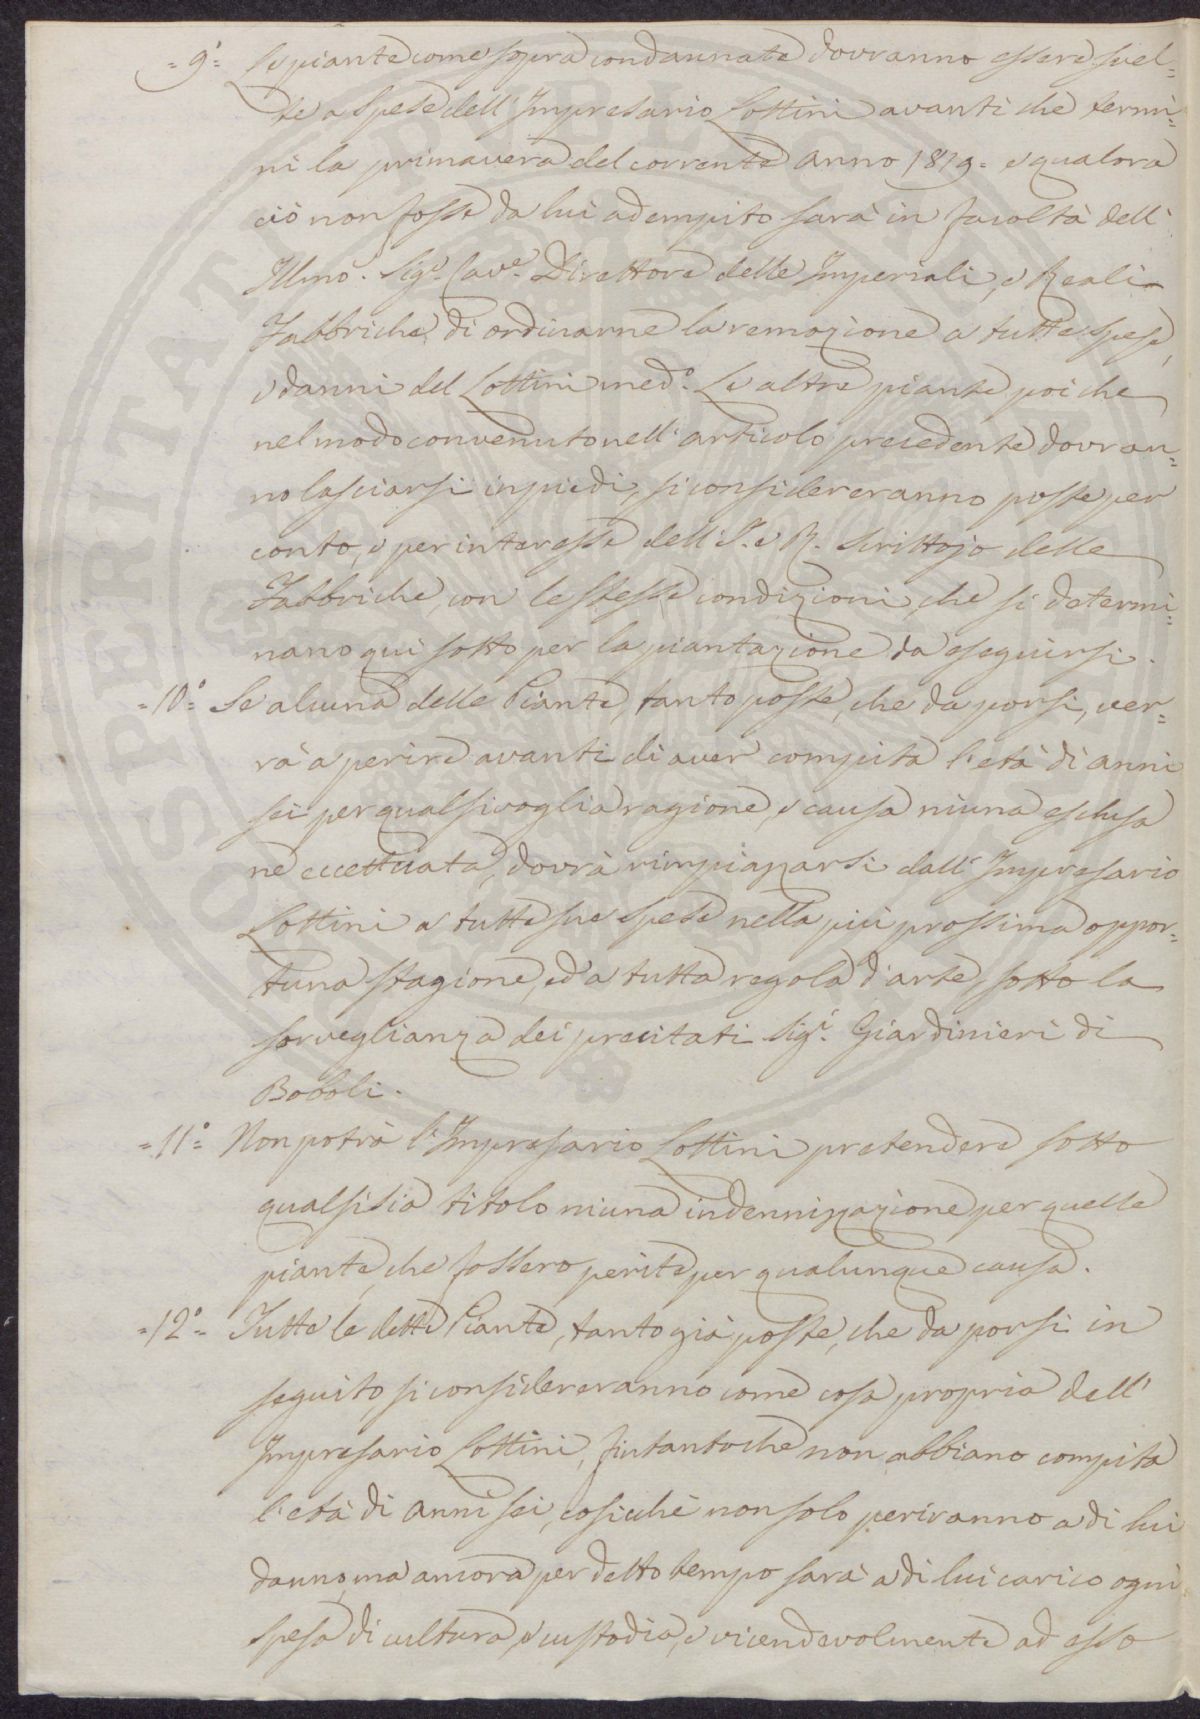 =9°= Le piante come sopra condannate dovranno essere svel=
te a spese dell'Impresario Lottini avanti che termi=
ni la primavera del corrente anno 1819= e qualora
ciò non fosse da lui adempito sarà in facoltà dell'
Illmo. Sigr. Cave. Direttore delle Imperiali, e Reali
Fabbriche, di ordinarne la remozione a tutte spese,
e danni del Lottini med°. Le altre piante poi che
nel modo convenuto nell'articolo precedente dovran=
no lasciarsi in piedi, si considereranno poste per
conto, e per interesse dell'I. e R. Scrittojo delle
Fabbriche, con le stesse condizioni, che si determi=
nano qui sotto per la piantazione da eseguirsi.
=10°= Se alcuna delle Piante, tanto poste, che da porsi, ver=
rà a perire avanti di aver compita l'età di anni
sei per qualsivoglia ragione, e causa niuna esclusa
nè eccettuata, dovrà rimpiazzarsi dall'Impresario
Lottini a tutte sue spese nella più prossima oppor=
tuna stagione, ed a tutta regola d'arte, sotto la
sorveglianza dei precitati Sigi. Giardinieri di
Boboli.
=11°= Non potrà l'Impresario Lottini pretendere sotto
qualsisia titolo niuna indennizzazione per quelle
piante, che fossero perite per qualunque causa.
=12°= Tutte le dette Piante, tanto già poste, che da porsi in
seguito si considereranno come cosa propria dell'
Impresario Lottini, fintantochè non abbiano compita
l'età di anni sei, cosicchè non solo periranno a di lui
danno, ma ancora per detto tempo sarà a di lui carico ogni
spesa di cultura, e custodia, e vicendevolmente ad esso
PROSPERITATI PUBLICAE